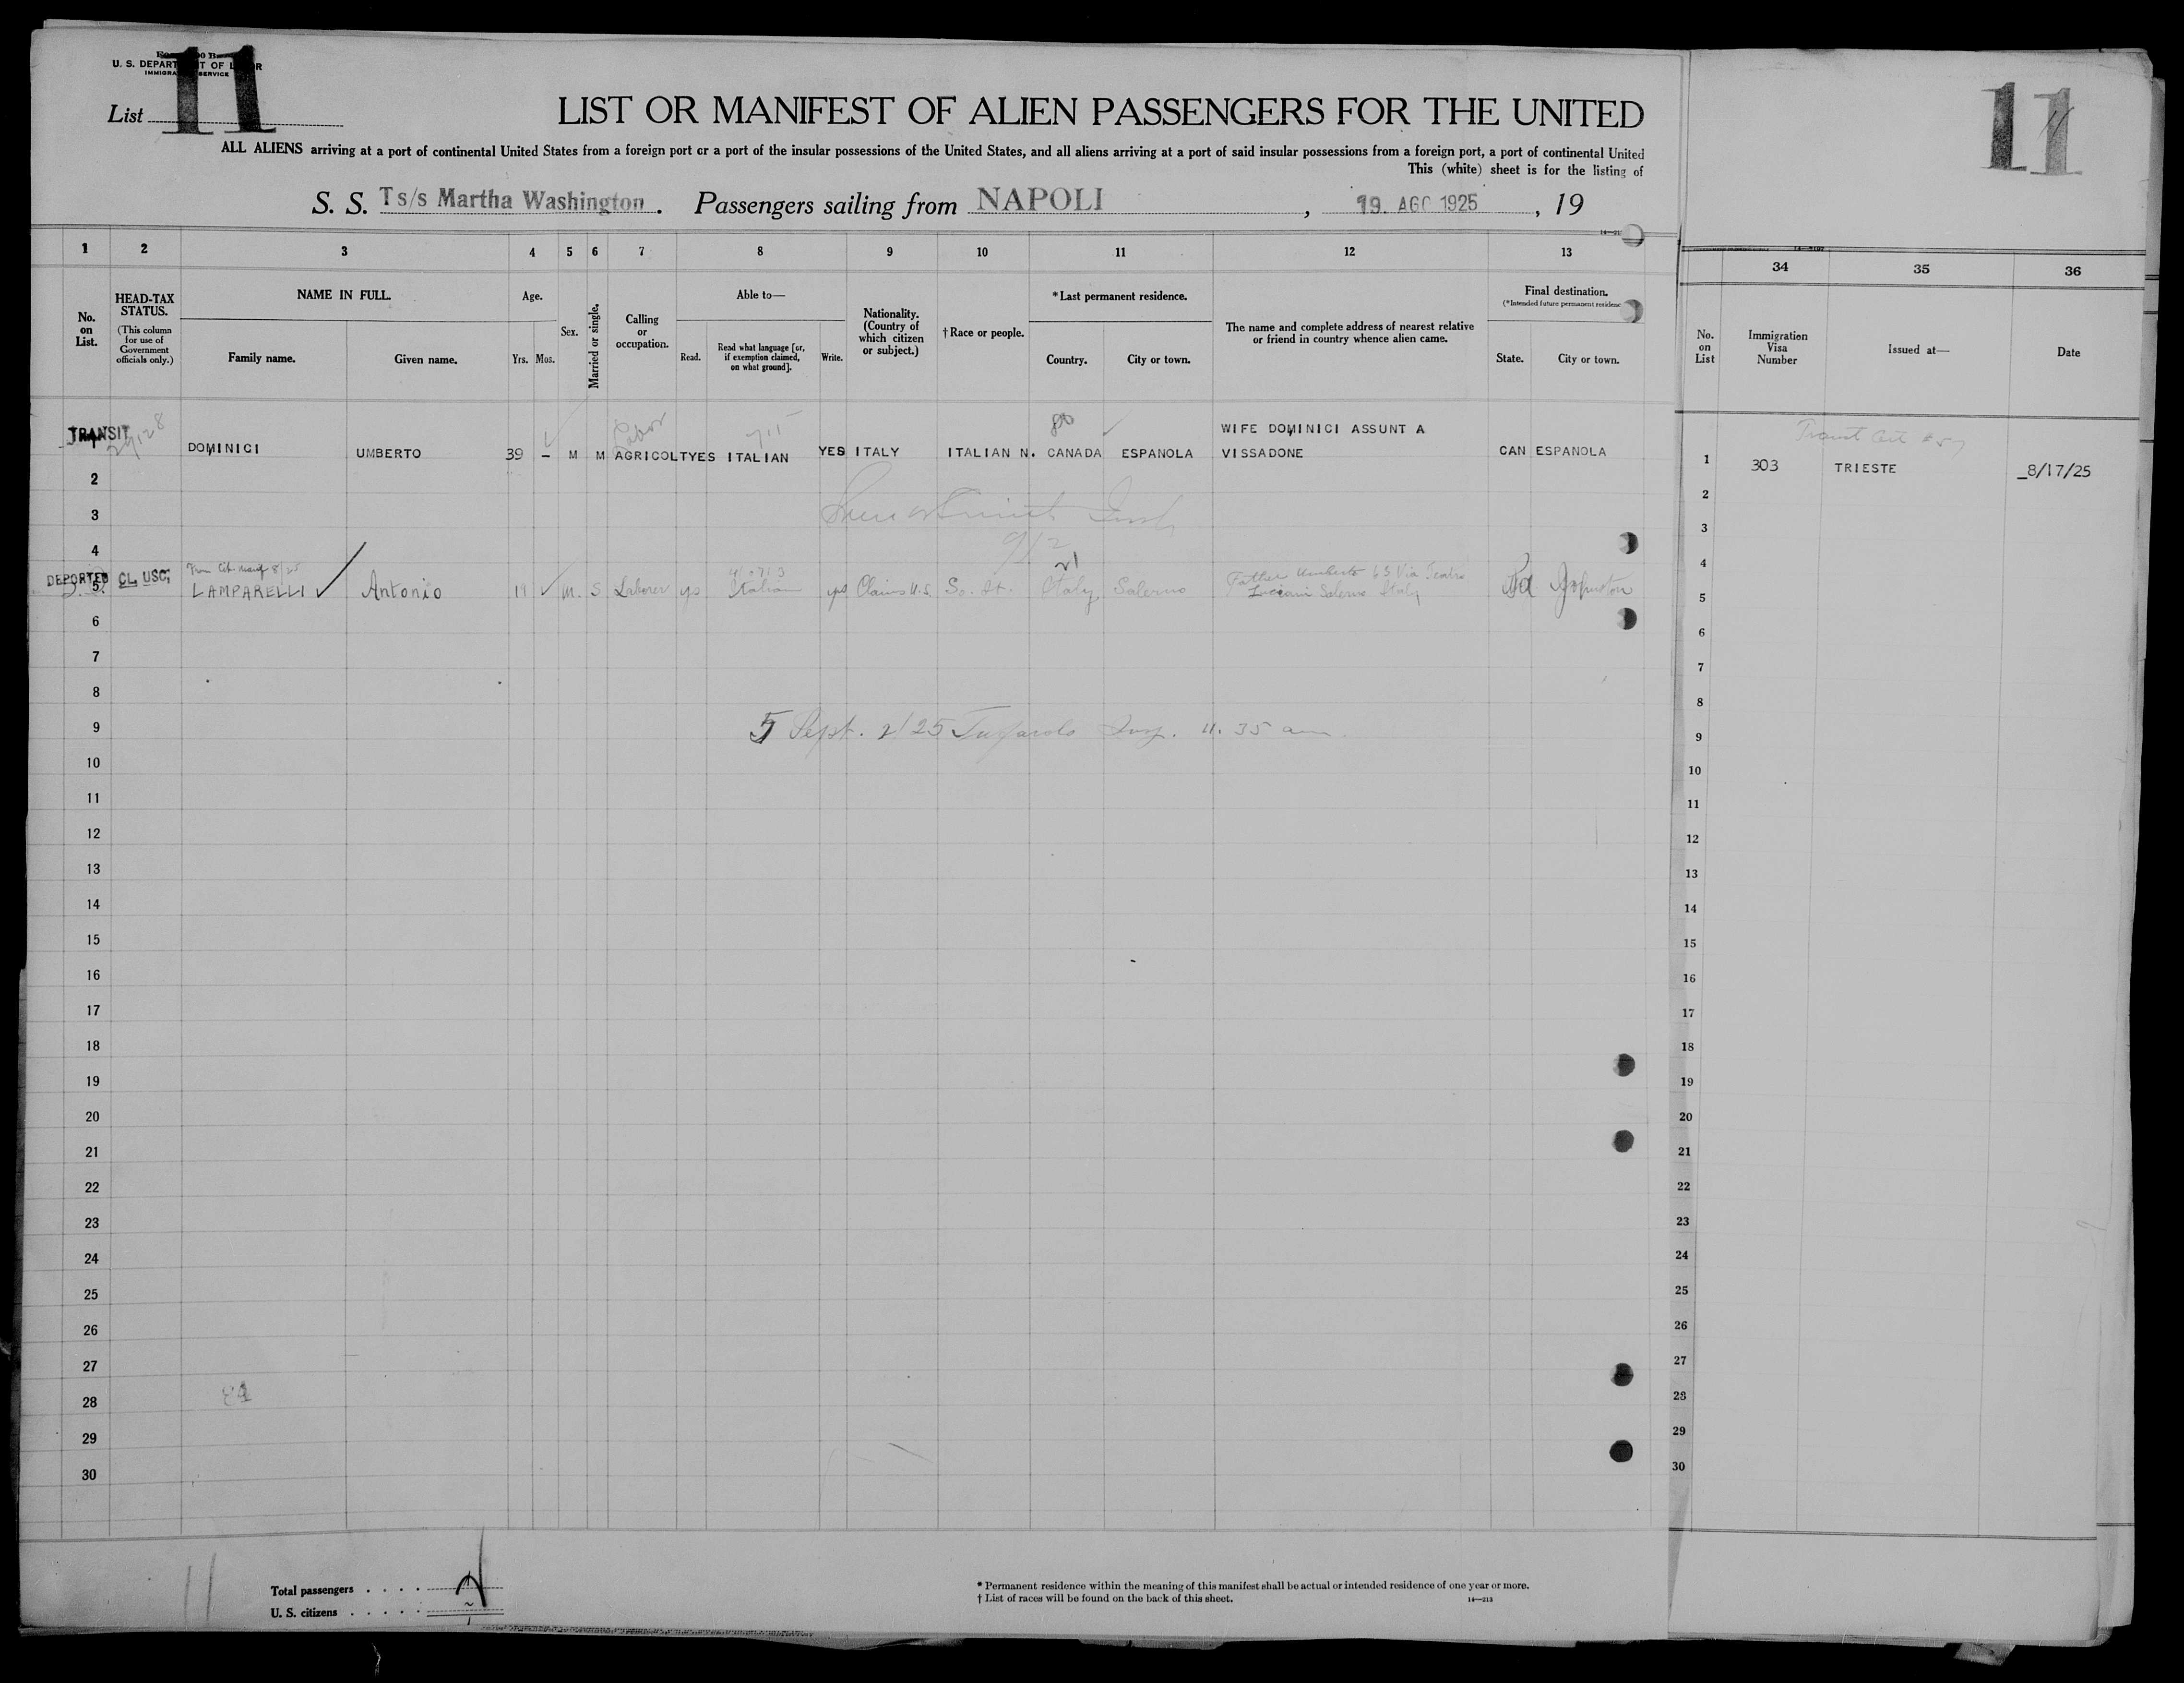 U. S. DEPARTMENT OF LABOR
IMMIGRATION SERVICE
List 11
11
LIST OR MANIFEST OF ALIEN PASSENGERS FOR THE UNITED
ALL ALIENS arriving at a port of continental United States from a foreign port or a port of the insular possessions of the United States, and all aliens arriving at a port of said insular possessions from a foreign port, a port of continental United
This (white) sheet is for the listing of
S. S. Ts/s Martha Washington. Passengers sailing from NAPOLI, 19. AGO 1925, 19
1 2 3 4 5 6 7 8 9 10 11 12 13 34 35 36
No. on List.
HEAD-TAX STATUS.
(This column for use of Government officials only.)
NAME IN FULL.
Family name. Given name.
Age.
Yrs. Mos.
Sex.
Married or single.
Calling or occupation.
Able to—
Read. Read what language [or, if exemption claimed, on what ground]. Write.
Nationality. (Country of which citizen or subject.)
†Race or people.
*Last permanent residence.
Country. City or town.
The name and complete address of nearest relative or friend in country whence alien came.
Final destination.
(*Intended future permanent residence
State. City or town.
No. on List
Immigration Visa Number
Issued at—
Date
TRANSIT
Labor
WIFE DOMINICI ASSUNT A
DOMINICI UMBERTO 39 – M M AGRICOLT YES ITALIAN YES ITALY ITALIAN N. CANADA ESPANOLA VISSADONE CAN ESPANOLA 1 303 TRIESTE 8/17/25
2 2
3 3
9/2
4 4
DEPORTED CL. USC;
5 LAMPARELLI Antonio 19 M. S Laborer yes Italian yes Claims U.S. So. It. Italy Salerno Father Umberto 65 Via Teatro
Salerno Italy Pa Johnston 5
6 6
7 7
8 8
9 5 Sept. 2/25 Insp. 11.35 am. 9
10 10
11 11
12 12
13 13
14 14
15 15
16 16
17 17
18 18
19 19
20 20
21 21
22 22
23 23
24 24
25 25
26 26
27 27
28 28
29 29
30 30
11
Total passengers . . . .
U. S. citizens . . . . .
* Permanent residence within the meaning of this manifest shall be actual or intended residence of one year or more.
† List of races will be found on the back of this sheet. 14—213